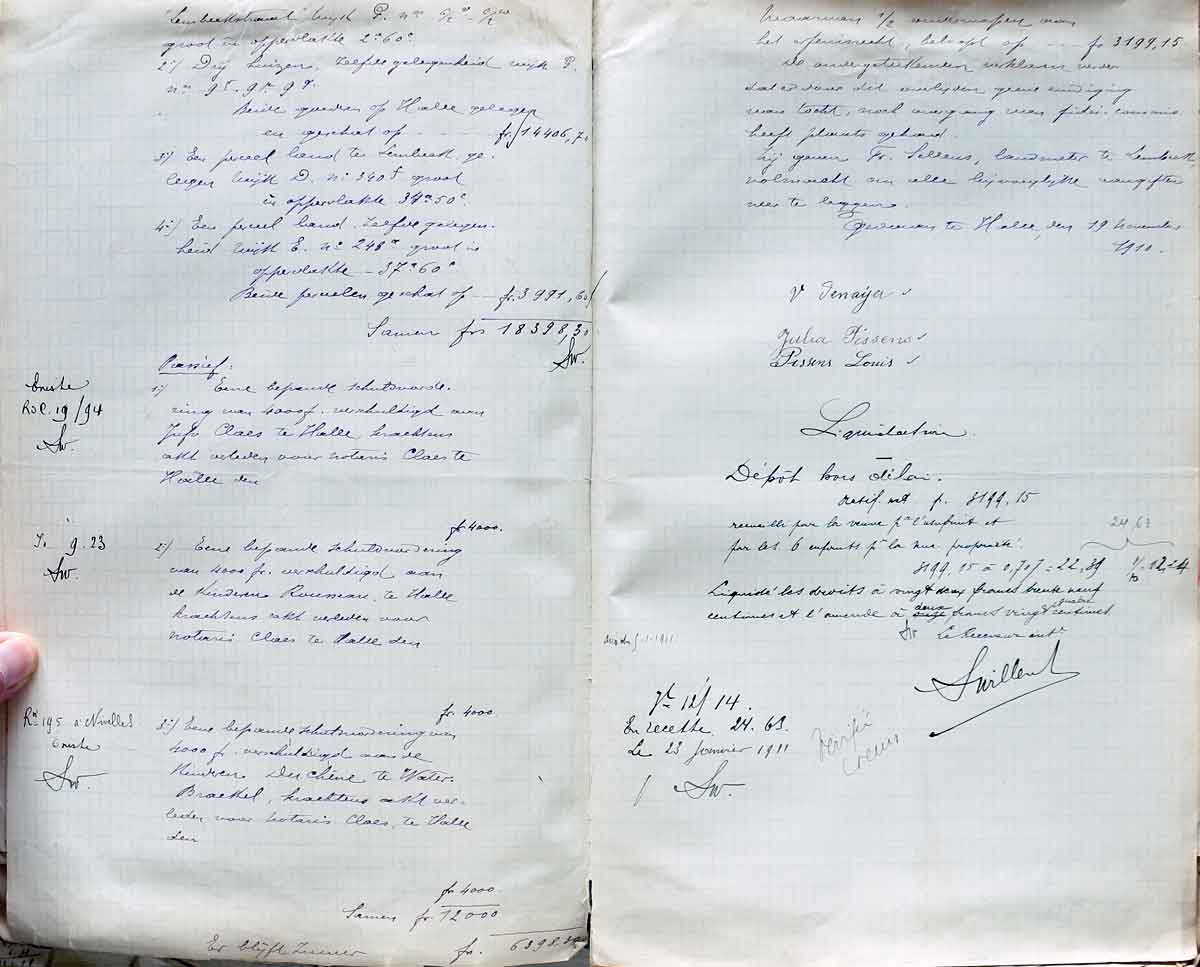 "Lembeekstraat" wijk P. nrs
groot in oppervlakte 2a 60c
2:) Drij huizen. Zelfde gelegenheid wijk P.
nrs 95. 9r. 9q.
Beide goederen op Halle gelegen
en geschat op fr. 14406,70
3:) Een perceel land te Lembeek ge-
legen wijk D. nr 340 groot
in oppervlakte 34a 50c.
4:) Een perceel land. Zelfde gelegen-
heid wijk E. nr 248 groot in
oppervlakte - 37a 60c
Beide perceelen geschat op fr. 3991,60
Samen frs 18398,30
Sw.
Passief.
Eniste
Rol. 19/94
Sw.
1:) Eene bepande schuldvorde-
ring van 4000 f. verschuldigd aan
Jufv Claes te Halle krachtens
akt verleden voor notaris Claes te
Halle den
fr 4000.
9.23
Sw.
2:) Eene bepande schuldvordering
van 4000 fr. verschuldigd aan
de Kinderen Rousseau te Halle
krachtens akt verleden voor
notaris Claes te Halle den
fr. 4000.
195 à Nivelles
Eniste
Sw.
3:) Eene bepande schuldvordering van
4000 f. verschuldigd aan de
Kinderen Deschêne te Water-
Braekel, krachtens akt ver-
leden voor notaris Claes, te Halle
den
fr 4000.
Samen fr. 12000
Er blijft zuiver fr. 6398.30
Waarvan 1/2 onderworpen aan
het openrecht, beloopt op fr 3199,15
De ondergeteekenden verklaren verder
dat er door dit overlijden geene eindiging
van tocht, noch overgang van fidei-commis
heeft plaats gehad.
Zij geven Fr. Sellens, landmeter te Lembeek,
volmacht om alle bijvoeglijke aangiften
neer te leggen.
Gedaan te Halle, den 19 November
1910.
V Denayer
Julia Pissens
Pissens Louis
Liquidation.
Dépôt hors délai.
actif net f. 3199.15
recueilli par la veuve pr l'usufruit et
24.63
par les 6 enfants pr la nue propriété.
3199,15 à 0,70% = 22,39 1/10 2,24
Liquidé les droits à vingt deux francs trente neuf
centimes et l'amende à deux francs vingt quatre centimes
Sw Le Receveur intr
5-1-1911
Swillent
12/14.
En recette 24.63.
Le 23 Janvier 1911
Sw.
Vérifié